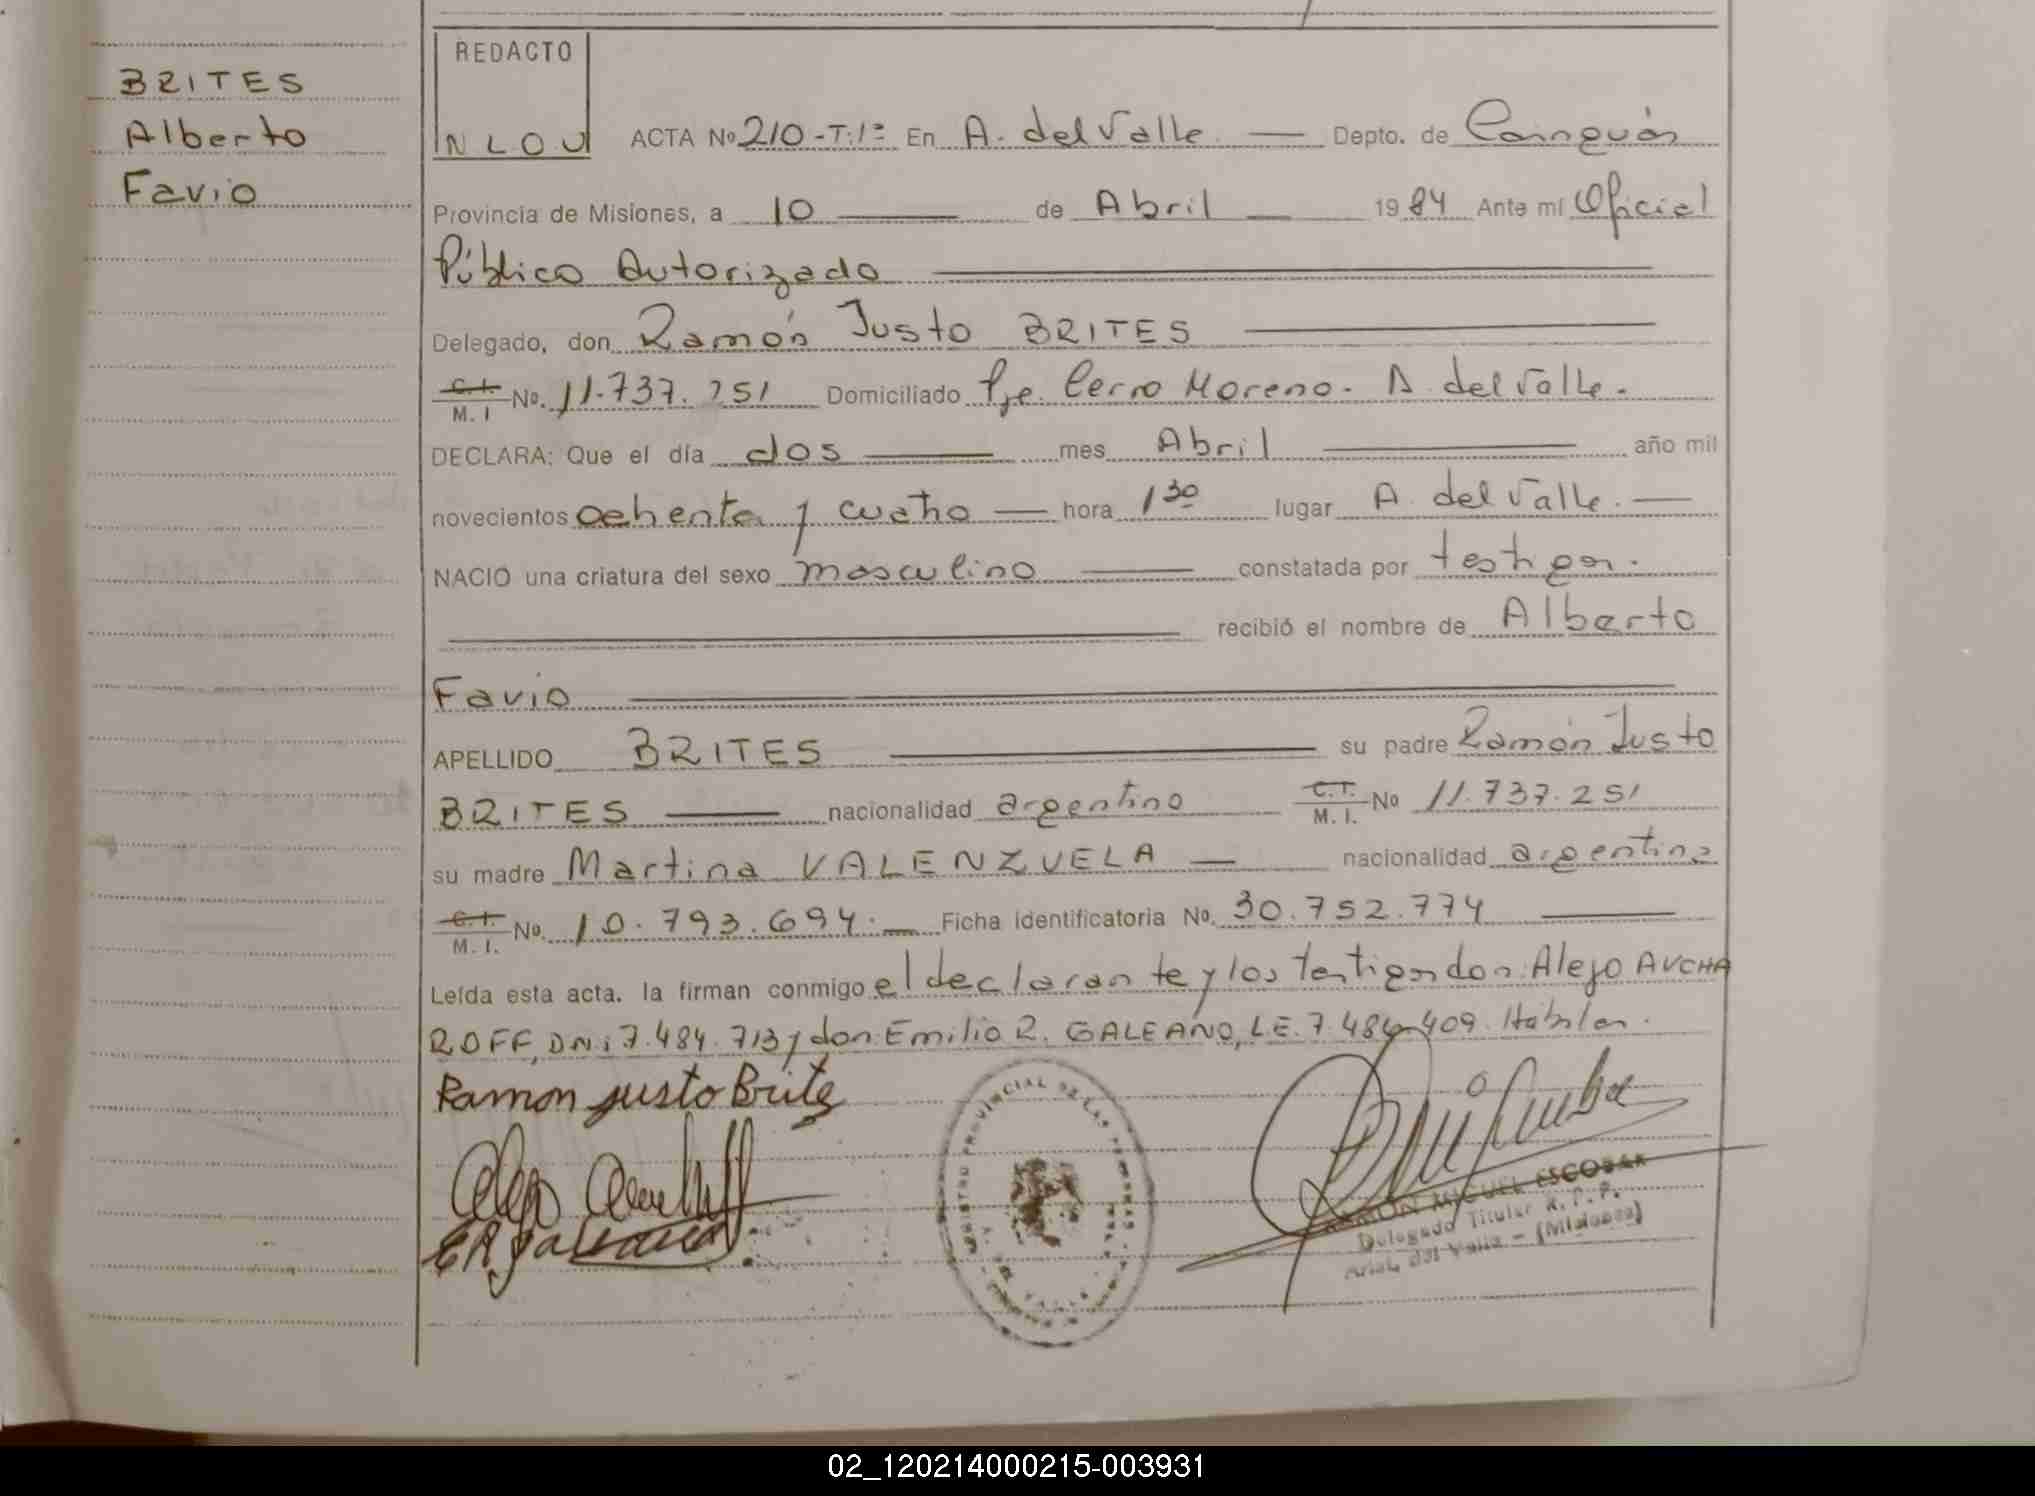 BRITES
Alberto
Favio
REDACTO
NLOU
ACTA Nº 210-T:1º En A. del Valle. Depto. de Cainguás
Provincia de Misiones, a 10 de Abril 1984 Ante mí Oficial
Público Autorizado
Delegado, don Ramón Justo BRITES
C.I. M. I No. 11.737.251 Domiciliado Pje. Cerro Moreno- A. del Valle.
DECLARA: Que el día dos mes Abril año mil
novecientos ochenta y cuatro hora 1 30 lugar A. del Valle.
NACIO una criatura del sexo masculino constatada por testigos.
recibió el nombre de Alberto
Favio
APELLIDO BRITES su padre Ramón Justo
BRITES nacionalidad argentino C.I. M. I. No 11.737.251
su madre Martina VALENZUELA nacionalidad argentina
C.I. M. I. No. 10.793.694. Ficha identificatoria No. 30.752.774
Leída esta acta. la firman conmigo el declarante y los testigos don: Alejo AUCHA
ROFF, DNi 7.484.713 y don: Emilio R. GALEANO, L.E. 7.484.409. Hábiles.
Ramon justo Brites
REGISTRO PROVINCIAL DE LAS PERSONAS
RAMON MIGUEL ESCOBAR
Delegado Titular R. P. P.
Arist. del Valle - (Misiones)
02_120214000215-003931